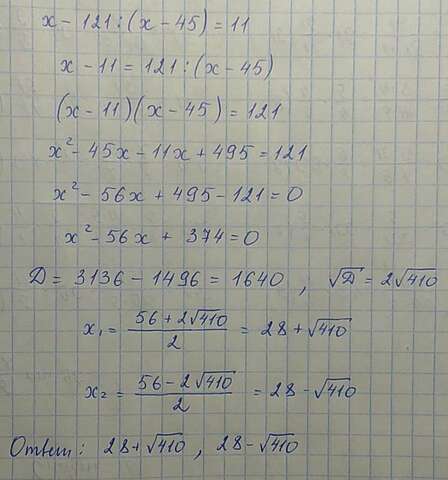 x - 121 : (x - 45) = 11
x - 11 = 121 : (x - 45)
(x - 11)(x - 45) = 121
x² - 45x - 11x + 495 = 121
x² - 56x + 495 - 121 = 0
x² - 56x + 374 = 0
D = 3136 - 1496 = 1640 , √D = 2√410
x₁ = (56 + 2√410)/2 = 28 + √410
x₂ = (56 - 2√410)/2 = 28 - √410
Ответ: 28 + √410 , 28 - √410